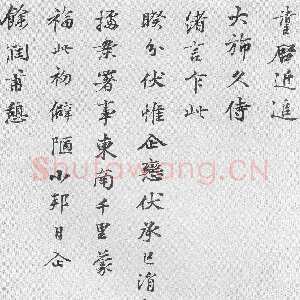 重啓近違
大旆久侍
緒言乍此
暌分伏惟企戀伏承已涓
據案署事東南千里蒙
福此初僻陋小邦日企
餘潤甫憩
Shufawang.CN